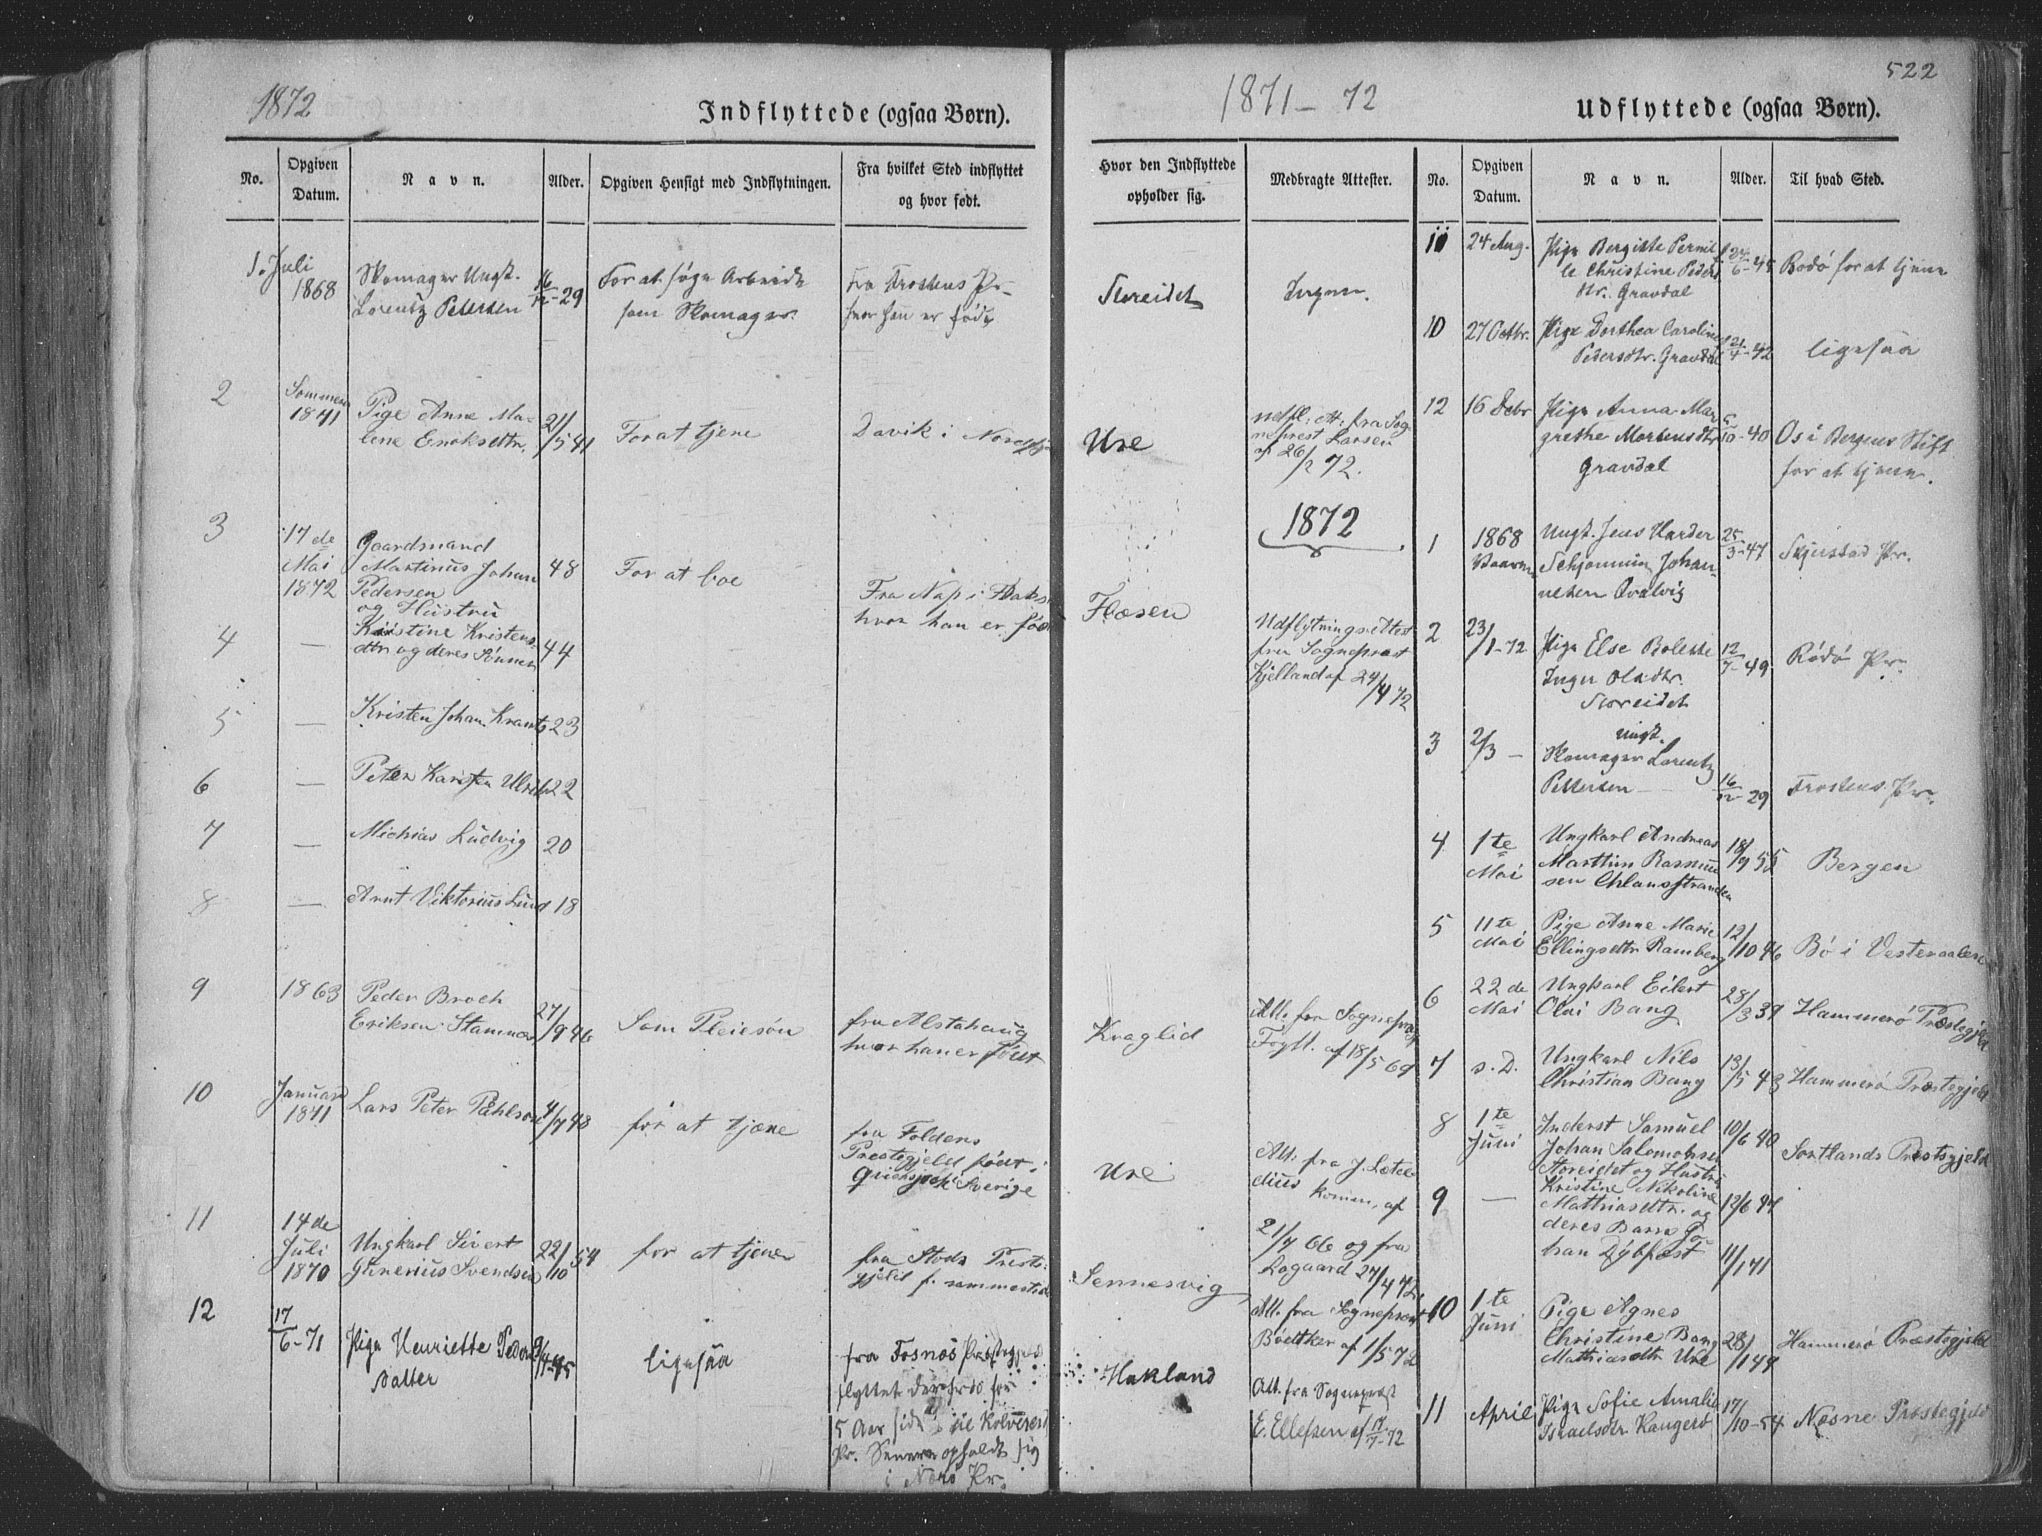 1872
Indflyttede (ogsaa Børn).
No.
Opgiven
Datum.
Navn.
Alder.
Opgiven Hensigt med Indflytningen.
Fra hvilket Sted indflyttet
og hvor født.
1. Juli
1868
Skomager Ungk.
Lorentz Petersen
16/12-29
For at søge Arbeide
som Skomager.
Fra Frostens Pr.
hvor han er født
2
Sommeren
1871
Pige Anne Ma-
lene Enoksdtr.
21/5 41
For at tjene
Davik i
3
17de
Mai
1872
Gaardmand
Martinus Johan
Pedersen
og Hustru
48
For at boe
Fra Nap i
hvor han er født
4
—
Kristine Kristens-
dtr og deres Sønner
44
5
—
Kristen Johan Krantz
23
6
—
Peter Karsten Ulrik
22
7
—
Michias Ludvig
20
8
—
Arnt Viktorius Lind
18
9
1863
Peder Broch
Eriksen Stamnæs
27/9 46
Som Pleiesøn
fra Alstahaug
hvor han er født
10
Januar
1871
Lars Peter Pahlson
4/7 48
for at tjene
fra Foldens
Prestegjeld født i
Sverige
11
14de
Juli
1870
Ungkarl Sivert
Gunerius Svendsen
22/10 54
for at tjene
fra Stods Preste-
gjeld f. sammesteds
12
17/6-71
Pige Henriette Peders
datter
9/4-45
ligesaa
fra Fosnæs Præstegjeld
flyttet derfra for
5 Aar siden til Kolvereid
Pr. Senere opholdt sig
i Nærø Pr.
522
1871-72
Udflyttede (ogsaa Børn).
Hvor den Indflyttede
opholder sig.
Medbragte Attester.
No.
Opgiven
Datum.
Navn.
Alder.
Til hvad Sted.
Storeidet
Ingen.
Ure
Udfl. Att. fra Sog-
neprest Larsen
af 26/2 72.
1872
Flæsen
Udflytningsattest
fra Sogneprest
Kjelland af 24/4 72
Kraglid
Att. fra Sogneprest
Fogtt. af 18/5 69
Ure
Att. fra J. Læsta-
dius komm. af
21/7 66 og fra
Aagaard 27/4 72.
Sennesvig
Att. fra Sogneprest
Bødtker af 1/5 72
Hakland
Att. fra Sogneprest
E. Ellefsen af 17/7-72
11
24 Aug.
Pige Bergitte Pernil
le Christine Peders
dtr. Gravdal
24/6-45
Bodø for at tjene
10
27 Octbr.
Pige Dorthea Caroline
Pedersdtr. Gravdal
21/4-42
ligesaa
12
16 Debr
Pige Anna Mar
grethe Mortensdtr
Gravdal
6/10-40
Os i Bergens Stift
for at tjene.
1
1868
Vaaren
Ungk. Jens Harder
Schjønning Johan-
nesen Qvalvig
25/3-47
Skjerstad Pr.
2
23/1-72
Pige Else Bolette
Inger Olsdtr.
Storeidet
12/7-49
Rødø Pr.
3
2/3 —
Ungk.
Skomager Lorentz
Petersen —
16/12-29
Frostens Pr.
4
1te
Mai
Ungkarl Andreas
Marthin Rasmus
sen Chlausstranden
18/9 55
Bergen
5
11te
Mai
Pige Anne Marie
Ellingsdtr Ramberg
12/10 46
Bø i Vesteraalen
6
22de
Mai
Ungkarl Eilert
Olai Bang
28/3 39
Hammerø Præstegjeld
7
s. D.
Ungkarl Nils
Christian Bang
13/5 43
Hammerø Præstegjeld
8
1te
Juni
Inderst Samuel
Johan Salomonsen
Storeidet og Hustru
10/6 40
Sortlands Prestegjeld
9
—
Kristine Nikoline
Mathiasdtr. og
deres Barn Jo-
han Dybfest
12/6 47
11/1 71
10
1te
Juni
Pige Agnes
Christine Bang
Mathiasdtr Ure
28/1 49
Hammerø Præstegjeld
11
April
Pige Sofie Amalie
Israelsdtr Kangerø
17/10-54
Næsne Præstegjeld